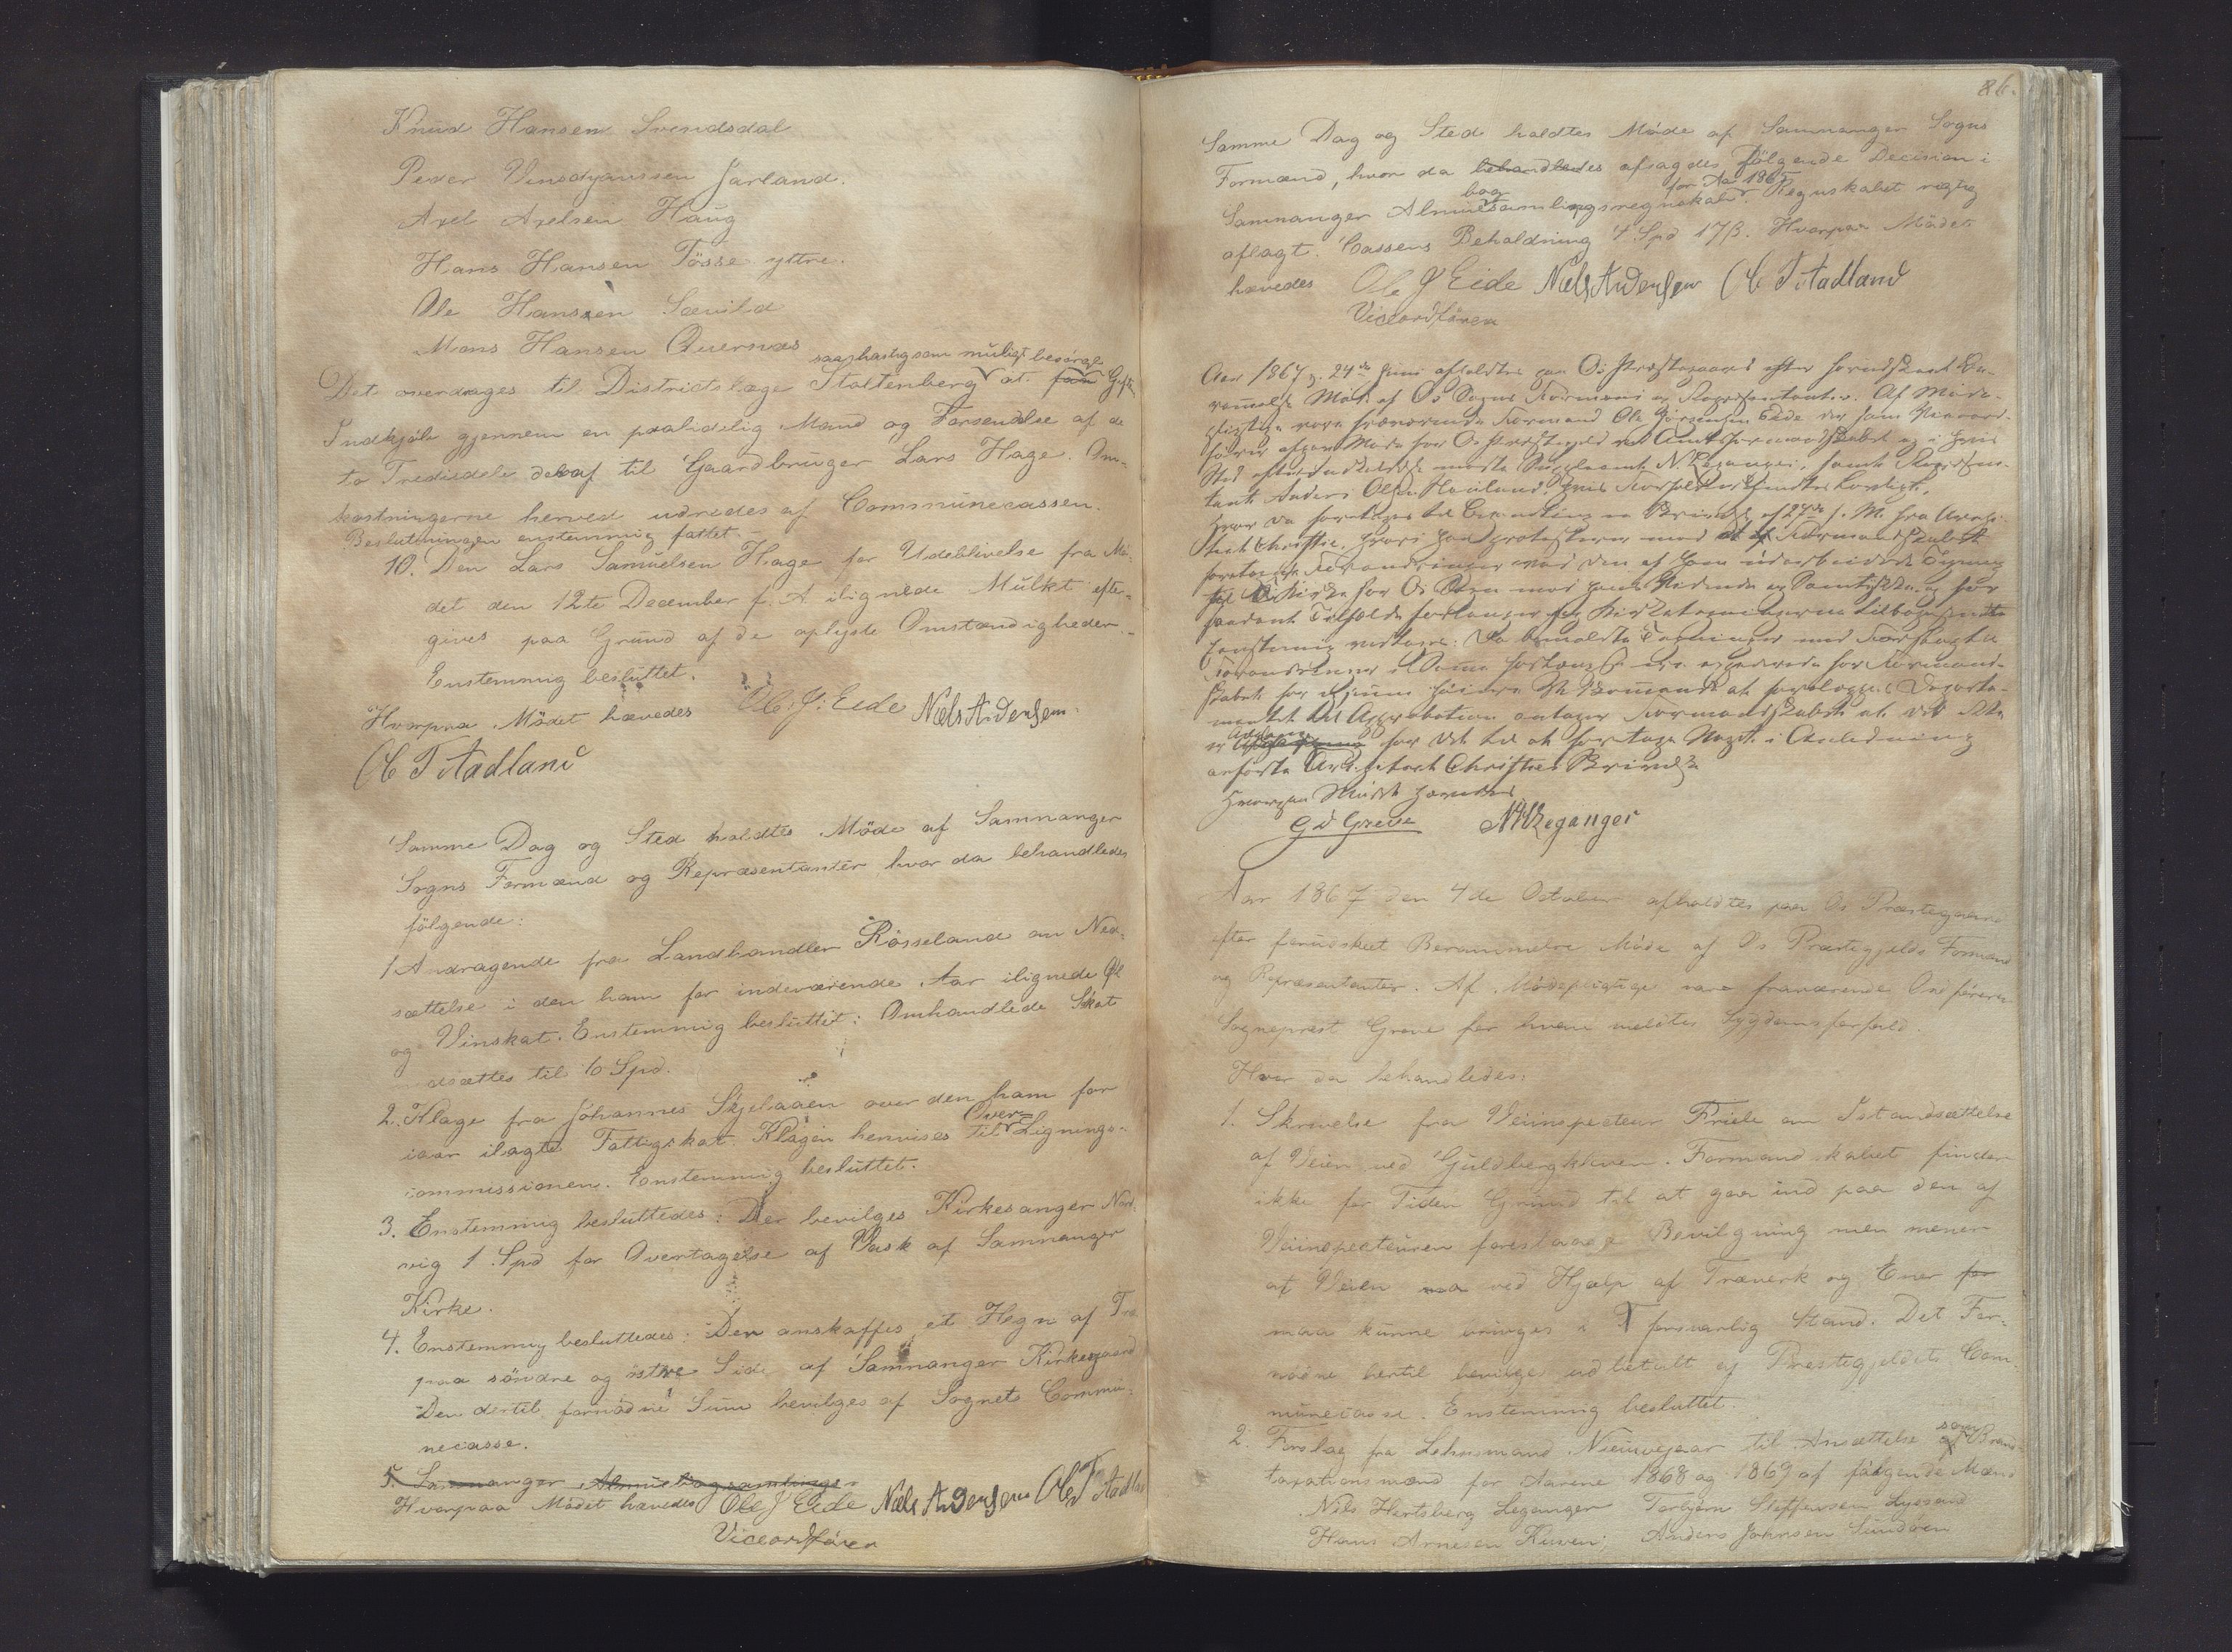 Knud Hansen Svendsdal
Peder Jarland.
Axel Axelsen Haug
Hans Hansen Tösse yttre.
Ole Hansen Sævild
Mons Hansen Quernæs
saa hastig som muligt besörge
Det overdrages til Districtslæge Stoltenberg at faa
Indkjøb gjennem en paalidelig Mand og Forsendelse af de
to Trediedele deraf til Gaardbruger Lars Hage. Om-
kostningerne herved udredes af Communecassen.
Beslutningen enstemmig fattet.
10. Den Lars Samuelsen Hage for Udeblivelse fra Mö-
det den 12te December f. A. ilignede Mulkt efter-
gives paa Grund af de oplyste Omstændigheder.
Enstemmig besluttet.
Hvorpaa Mödet hævedes Ole J: Eide Nels Andersen
Ole T Aadland
Samme Dag og Sted holdtes Möde af Samnanger
Sogns Formænd og Repræsentanter, hvor da behandledes
følgende:
1 Andragende fra Landhandler Rösseland om Ned-
sættelse i den ham for indeværende Aar ilignede Øl
og Vinskat. Enstemmig besluttet: Omhandlede Skat
nedsættes til 10 Spd.
2. Klage fra Johannes Skjelaaen over den ham for
iaar ilagte Fattigskat. Klagen henvises til Over-Lignings-
commissionen. Enstemmig besluttet.
3. Enstemmig besluttedes: Der bevilges Kirkesanger Nor-
vig 1 Spd for Overtagelse af Vask af Samnanger
Kirke.
4. Enstemmig besluttedes: Der anskaffes et Hegn af Træ
paa söndre og östre Side af Samnanger Kirkegaard
Den dertil fornödne Sum bevilges af Sognets Commu-
necasse.
5. Samnanger Almuebogsamlings
Hvorpaa Mödet hævedes Ole J Eide Nels Andersen Ole T Aadland
Viceordförer
86.
Samme Dag og Sted holdtes Möde af Samnanger Sogns
Formænd, hvor da behandledes afsagdes følgende Decision i
bog for Aa 1865
Samnanger Almuesamlingsregnskab. Regnskabet rigtig
aflagt. Cassens Beholdning 4 Spd 17 ß. Hvorpaa Mödet
hævedes Ole J Eide Nels Andersen Ole T Aadland
Viceordförer
Aar 1867 d. 24de Juni afholdtes paa Os Præstegaard efter forudskeet Be-
rammelse Möde af Os Sogns Formænd og Repræsentanter. Af Möde-
pligtige vare fraværende Formand Ole Jörgensen Eide der som Viceord-
förer afgav Möde for Os Præstegjeld ved Amtsformandskabet og i hans
Sted efter Indkaldelse mødte Suppleant N. Leganger, samt Repræsen-
tant Anders Olsen Haaland, hvis Forfald ansees lovligt.
Hvor da foretoges til Behandling en Skrivelse af 27de f. M. fra Archi-
tect Christie, hvori han protesterer mod de af Formandskabet
foretagne Forandringer ved den af ham udarbeidede Tegning
til Kirke for Os Sogn mod hans Vidende og Samtykke og for
saadant Tilfælde forlanger sig Kirketegningerne tilbagesendte
Hvorpaa Mödet hævedes
G D Greve N H Leganger
Aar 1867 den 4de October afholdtes paa Os Præstegaard
efter forudskeet Berammelse Möde af Os Præstegjelds Formænd
og Repræsentanter. Af Mödepligtige vare fraværende Ordföreren
Sogneprest Greve for hvem meldtes Sygdomsforfald.
Hvor da behandledes:
1. Skrivelse fra Veiinspecteur Friele om Istandsættelse
af Veien ved Guldbergkleven. Formandskabet finder
ikke for Tiden Grund til at gaa ind paa den af
Veiinspecteuren foreslaaede Bevilgning men mener
at Veien maa ved Hjælp af Træverk og Ener for
maa kunne bringes i forsvarlig Stand. Det For-
nødne hertil bevilges udbetalt af Præstegjeldets Com-
munecasse. Enstemmig besluttet.
2. Forslag fra Lehnsmand Nieuwejaar til Ansættelse som af Brand-
taxationsmænd for Aarene 1868 og 1869 af følgende Mænd
Nils Hertsberg Leganger Torbjörn Steffensen Lyssand
Hans Arnesen Kuven, Anders Johnsen Sundøen